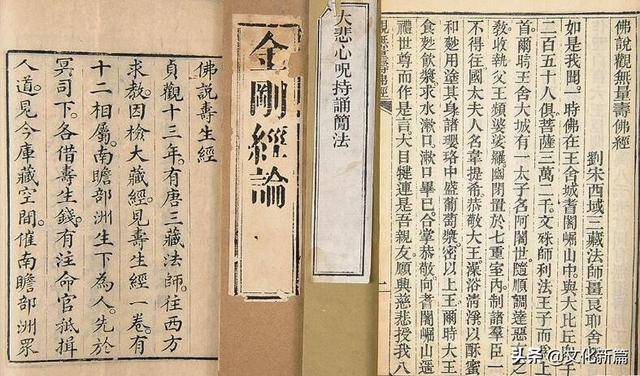 佛說觀無量壽佛經
劉宋西域三藏法師畺良耶舍
如是我聞一時佛在王舍城耆闍崛山中與大比丘
二百五十人俱菩薩三萬二千文殊師利法王子而上
首爾時王舍大城有一太子名阿闍世隨順調達惡友
敎收執父王頻婆娑羅幽閉置於七重室內制諸羣臣一
不得往國太夫人名韋提希恭敬大王澡浴清淨以酥蜜
和麨用塗其身諸瓔珞中盛葡萄漿密以上王爾時大王
食麨飮漿求水漱口漱口畢已合掌恭敬向耆闍崛山遥
禮世尊而作是言大目犍連是吾親友願興慈悲授我八
一
大悲心咒持誦簡法
金剛經論
佛說壽生經
貞觀十三年有唐三藏法師往西方
求教因檢大藏經見壽生經一卷有
十二相屬南瞻部洲生下為人先於
冥司下各借壽生錢有注命官祗揖
人道見今庫藏空閑催南瞻部洲眾
头条 @文化新篇